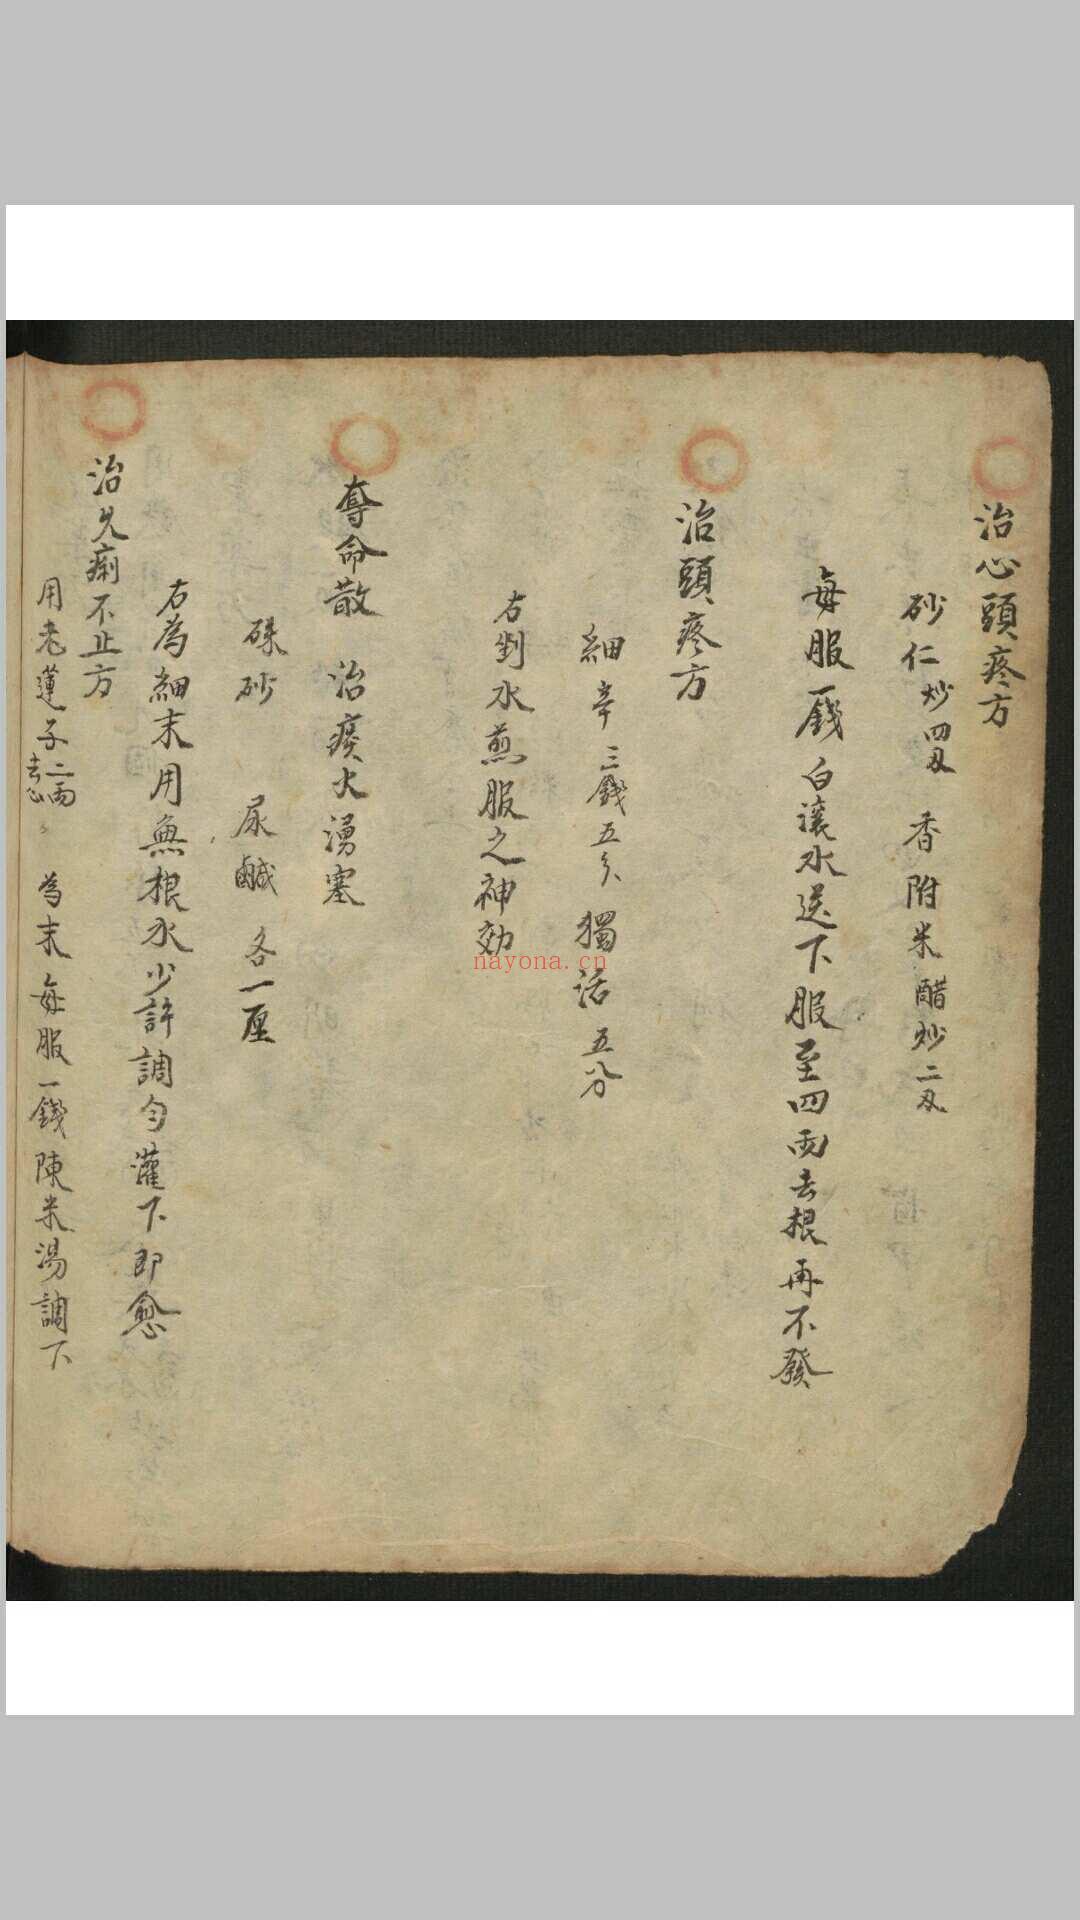 治心頭疼方
砂仁炒四刄 香附米醋炒二刄
每服一錢白滚水送下服至四兩去根再不發
治頭疼方
細辛三錢五分 獨活五分
右剉水煎服之神効
奪命散 治痰火湧塞
硃砂 尿鹹各一厘
右為細末用無根水少許調勻灌下即愈
治久痢不止方
用老蓮子二兩去心 為末每服一錢陳米湯調下
nayona.cn